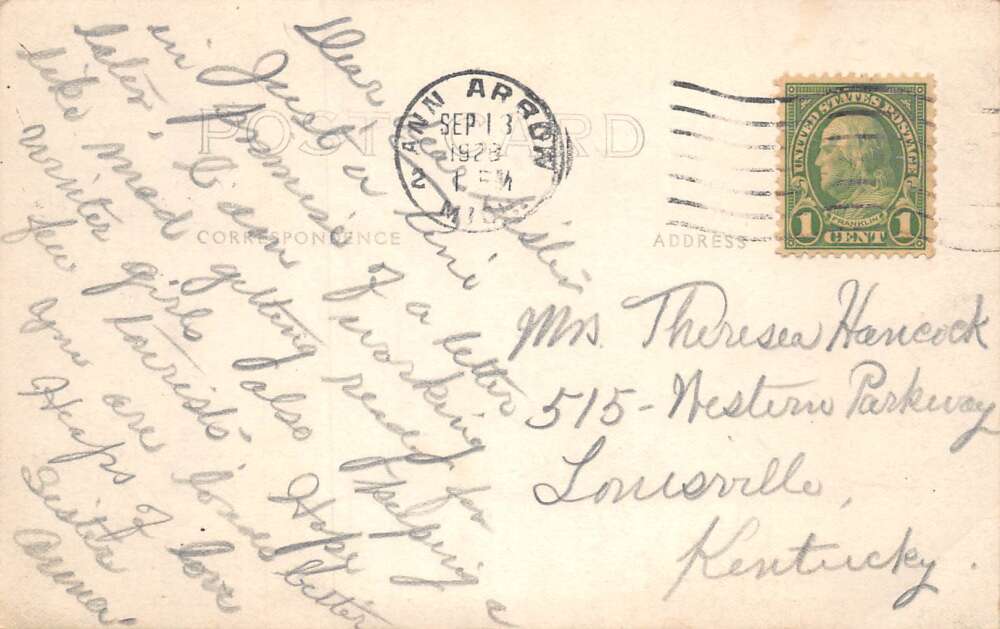 POST CARD
CORRESPONDENCE
ADDRESS
ANN ARBOR
2
SEP 13
1928
MICH
UNITED STATES POSTAGE
FRANKLIN
1 CENT 1
Dear Dear Sister
Just a line
in promise of a letter
later. I am working for
like mad getting ready helping a
winter girls also Hope
few tourists. better
you are
Heaps of love
Sister
Anna
Mrs. Theresea Hancock
515 - Western Parkway
Louisville,
Kentucky.